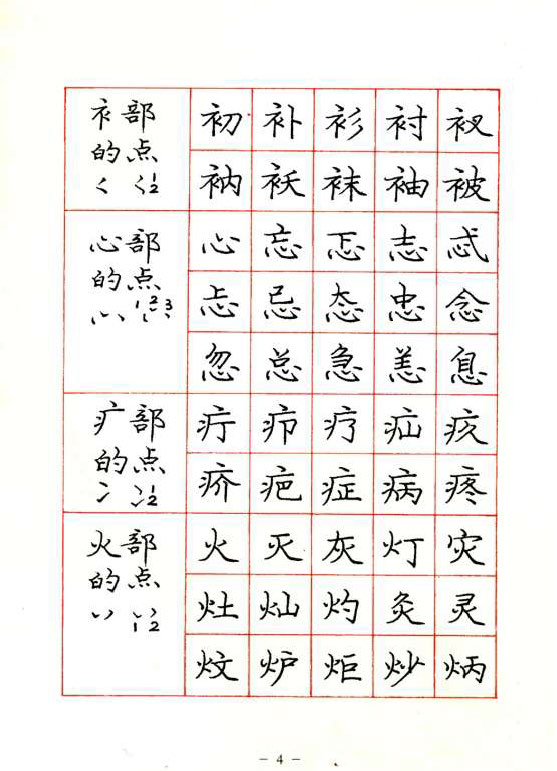 衤部
的点
12
初 补 衫 衬 衩
衲 袄 袜 袖 被
心部
的点
123
心 忘 忑 志 忒
忐 忌 态 忠 念
忽 总 急 恙 息
疒部
的点
12
疔 疖 疗 疝 疚
疥 疤 症 病 疼
火部
的点
12
火 灭 灰 灯 灾
灶 灿 灼 灸 灵
炆 炉 炬 炒 炳
- 4 -